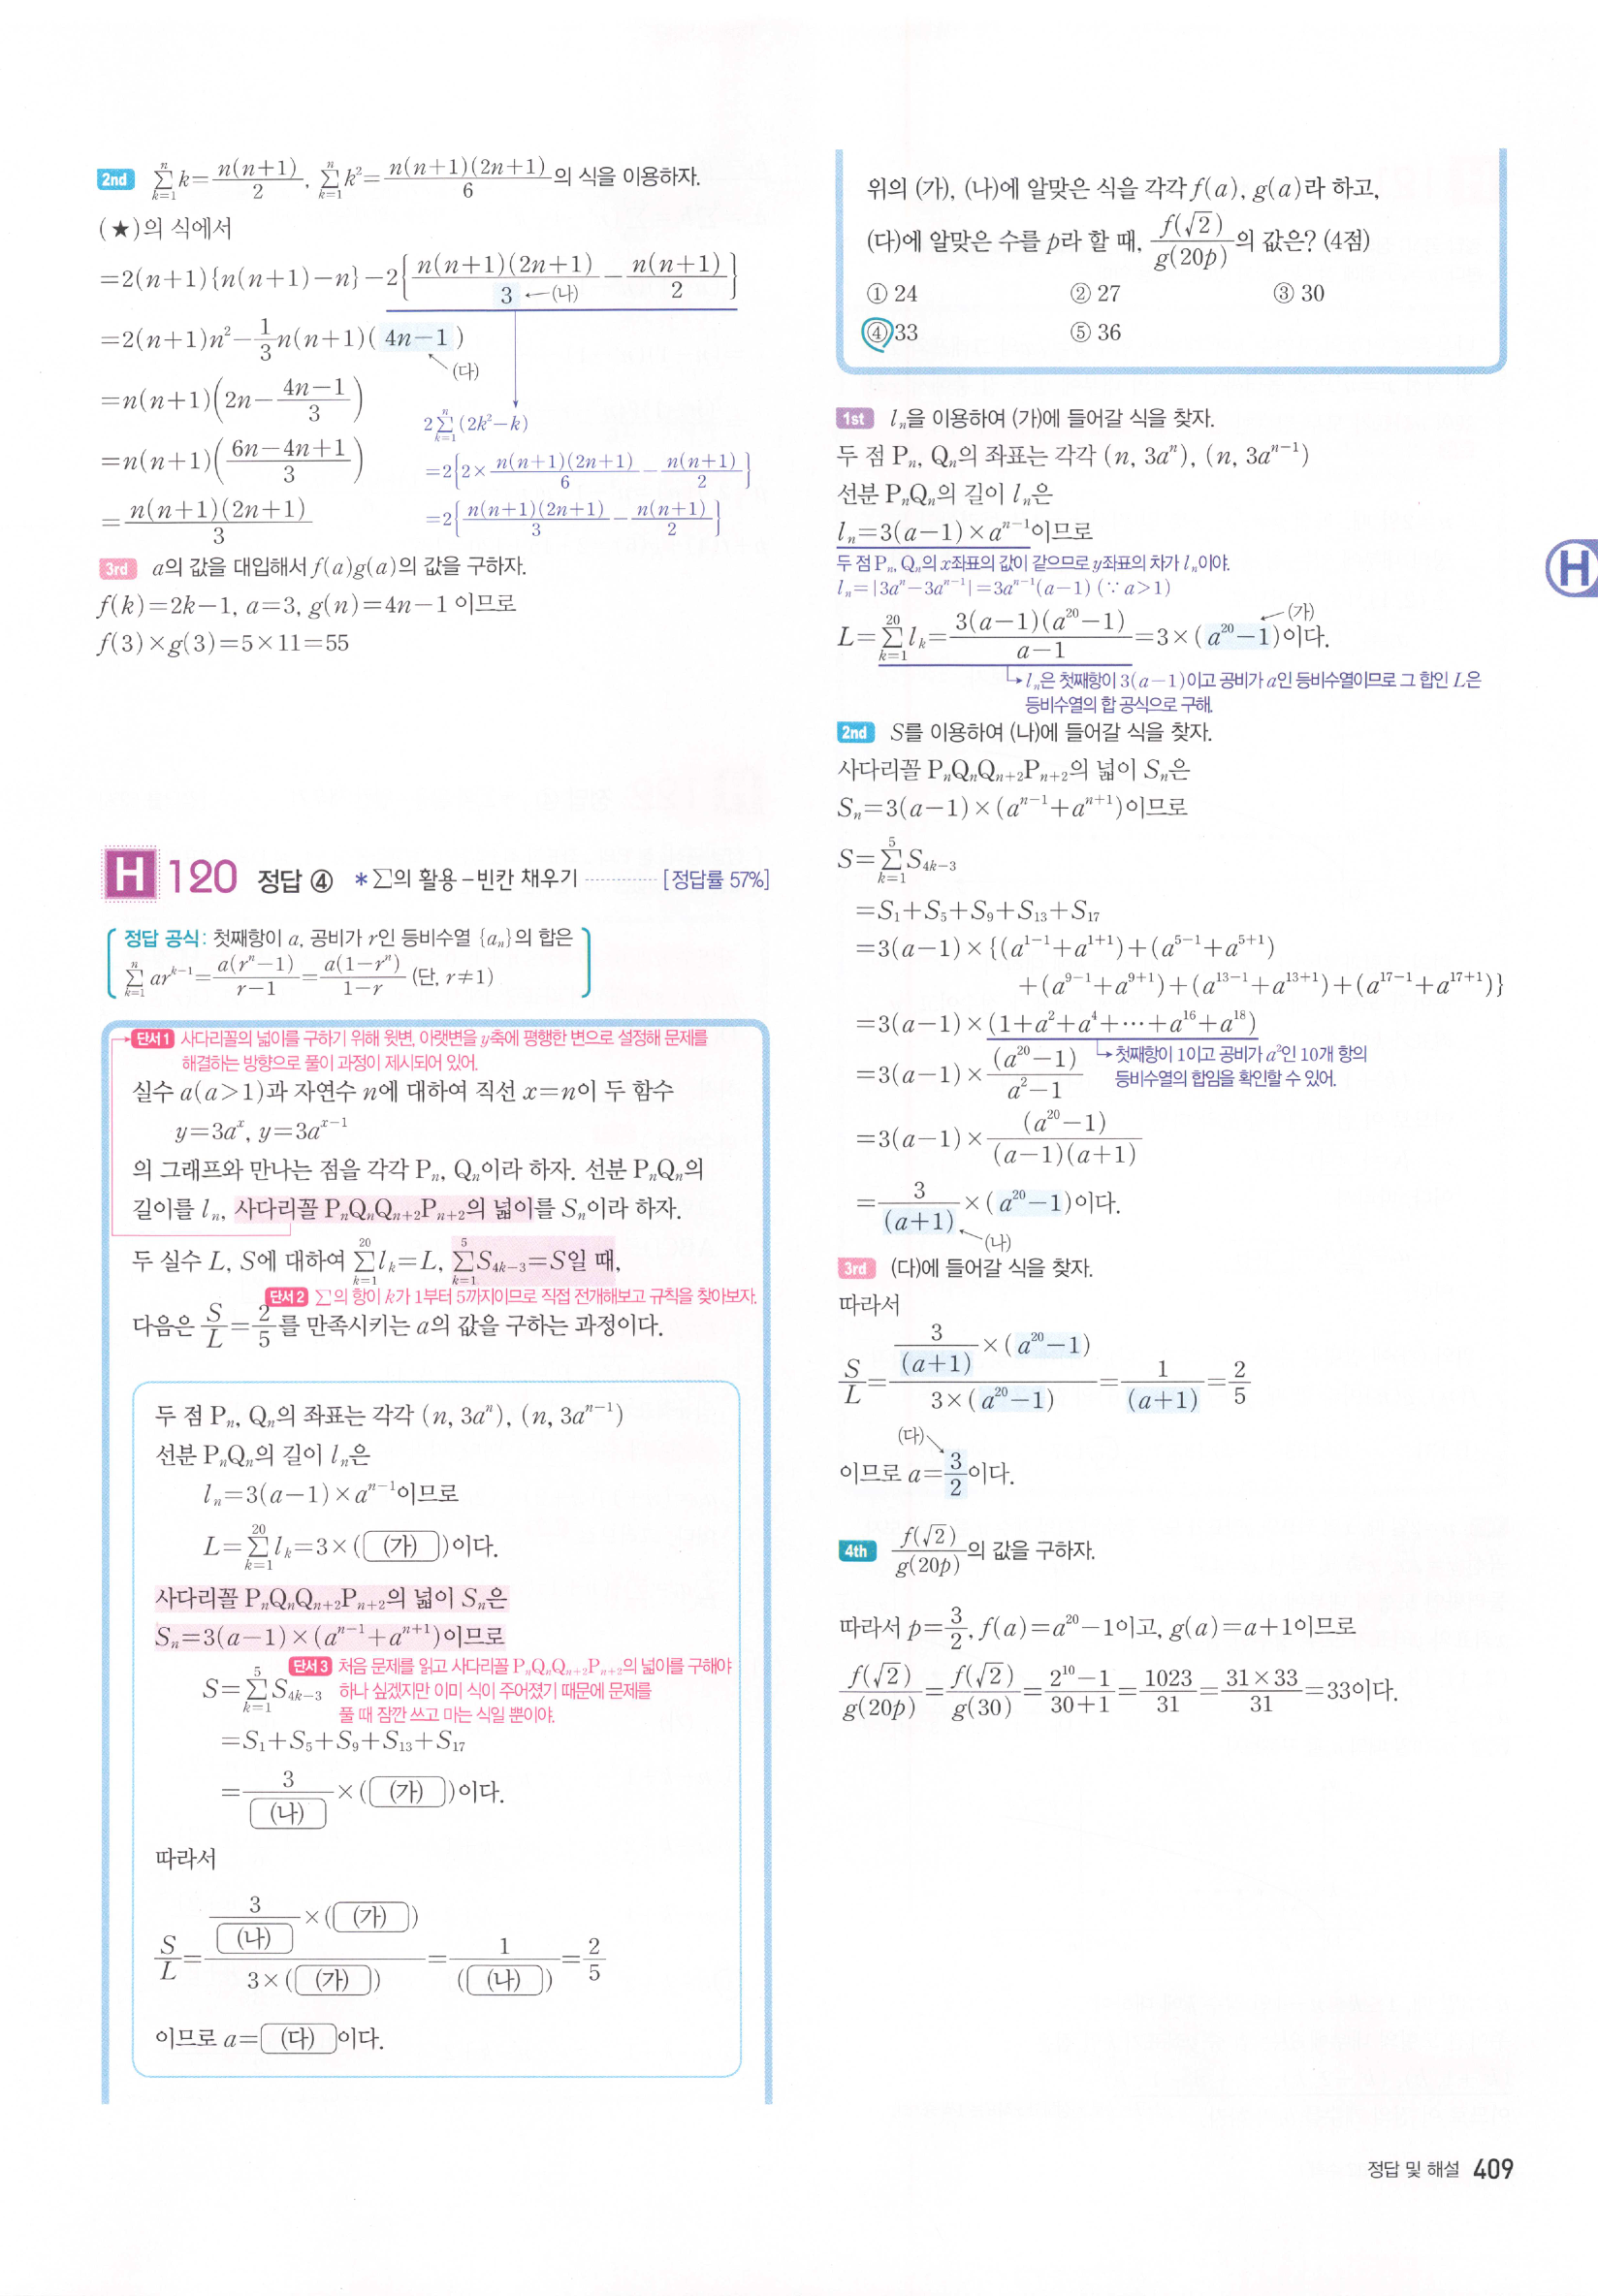 2nd ∑_{k=1}^{n} k = n(n+1)/2, ∑_{k=1}^{n} k² = n(n+1)(2n+1)/6 의 식을 이용하자.
(★)의 식에서
=2(n+1){n(n+1)-n}-2{n(n+1)(2n+1)/3 - n(n+1)/2}
←(나)
=2(n+1)n²-1/3 n(n+1)(4n-1)
(다)
=n(n+1)(2n-(4n-1)/3)
=n(n+1)((6n-4n+1)/3)
=n(n+1)(2n+1)/3
2∑_{k=1}^{n}(2k²-k)
=2{2×n(n+1)(2n+1)/6 - n(n+1)/2}
=2{n(n+1)(2n+1)/3 - n(n+1)/2}
3rd a의 값을 대입해서 f(a)g(a)의 값을 구하자.
f(k)=2k-1, a=3, g(n)=4n-1 이므로
f(3)×g(3)=5×11=55
H 120 정답 ④ *∑의 활용-빈칸 채우기 ············ [정답률 57%]
정답 공식: 첫째항이 a, 공비가 r인 등비수열 {aₙ}의 합은
∑_{k=1}^{n} ar^{k-1} = a(rⁿ-1)/(r-1) = a(1-rⁿ)/(1-r) (단, r≠1)
단서1 사다리꼴의 넓이를 구하기 위해 윗변, 아랫변을 y축에 평행한 변으로 설정해 문제를
해결하는 방향으로 풀이 과정이 제시되어 있어.
실수 a(a>1)과 자연수 n에 대하여 직선 x=n이 두 함수
y=3a^x, y=3a^{x-1}
의 그래프와 만나는 점을 각각 Pₙ, Qₙ이라 하자. 선분 PₙQₙ의
길이를 lₙ, 사다리꼴 PₙQₙQₙ₊₂Pₙ₊₂의 넓이를 Sₙ이라 하자.
두 실수 L, S에 대하여 ∑_{k=1}^{20} l_k=L, ∑_{k=1}^{5} S_{4k-3}=S일 때,
단서2 ∑의 항이 k가 1부터 5까지이므로 직접 전개해보고 규칙을 찾아보자.
다음은 S/L=2/5를 만족시키는 a의 값을 구하는 과정이다.
두 점 Pₙ, Qₙ의 좌표는 각각 (n, 3aⁿ), (n, 3a^{n-1})
선분 PₙQₙ의 길이 lₙ은
lₙ=3(a-1)×a^{n-1}이므로
L=∑_{k=1}^{20} l_k=3×( (가) )이다.
사다리꼴 PₙQₙQₙ₊₂Pₙ₊₂의 넓이 Sₙ은
Sₙ=3(a-1)×(a^{n-1}+a^{n+1})이므로
단서3 처음 문제를 읽고 사다리꼴 PₙQₙQₙ₊₂Pₙ₊₂의 넓이를 구해야
하나 싶겠지만 이미 식이 주어졌기 때문에 문제를
풀 때 잠깐 쓰고 마는 식일 뿐이야.
S=∑_{k=1}^{5} S_{4k-3}
=S₁+S₅+S₉+S₁₃+S₁₇
=3/(나)×( (가) )이다.
따라서
S/L={3/(나)×( (가) )}/{3×( (가) )}=1/( (나) )=2/5
이므로 a= (다) 이다.
위의 (가), (나)에 알맞은 식을 각각 f(a), g(a)라 하고,
(다)에 알맞은 수를 p라 할 때, f(√2)/g(20p)의 값은? (4점)
① 24 ② 27 ③ 30
④ 33 ⑤ 36
1st lₙ을 이용하여 (가)에 들어갈 식을 찾자.
두 점 Pₙ, Qₙ의 좌표는 각각 (n, 3aⁿ), (n, 3a^{n-1})
선분 PₙQₙ의 길이 lₙ은
lₙ=3(a-1)×a^{n-1}이므로
두 점 Pₙ, Qₙ의 x좌표의 값이 같으므로 y좌표의 차가 lₙ이야.
lₙ=|3aⁿ-3a^{n-1}|=3a^{n-1}(a-1) (∵ a>1)
L=∑_{k=1}^{20} l_k=3(a-1)(a²⁰-1)/(a-1)=3×(a²⁰-1)이다.
←(가)
lₙ은 첫째항이 3(a-1)이고 공비가 a인 등비수열이므로 그 합인 L은
등비수열의 합 공식으로 구해.
2nd S를 이용하여 (나)에 들어갈 식을 찾자.
사다리꼴 PₙQₙQₙ₊₂Pₙ₊₂의 넓이 Sₙ은
Sₙ=3(a-1)×(a^{n-1}+a^{n+1})이므로
S=∑_{k=1}^{5} S_{4k-3}
=S₁+S₅+S₉+S₁₃+S₁₇
=3(a-1)×{(a^{1-1}+a^{1+1})+(a^{5-1}+a^{5+1})
+(a^{9-1}+a^{9+1})+(a^{13-1}+a^{13+1})+(a^{17-1}+a^{17+1})}
=3(a-1)×(1+a²+a⁴+⋯+a¹⁶+a¹⁸)
=3(a-1)×(a²⁰-1)/(a²-1)
첫째항이 1이고 공비가 a²인 10개 항의
등비수열의 합임을 확인할 수 있어.
=3(a-1)×(a²⁰-1)/((a-1)(a+1))
=3/(a+1)×(a²⁰-1)이다.
(나)
3rd (다)에 들어갈 식을 찾자.
따라서
S/L={3/(a+1)×(a²⁰-1)}/{3×(a²⁰-1)}=1/(a+1)=2/5
(다)
이므로 a=3/2이다.
4th f(√2)/g(20p)의 값을 구하자.
따라서 p=3/2, f(a)=a²⁰-1이고, g(a)=a+1이므로
f(√2)/g(20p)=f(√2)/g(30)=(2¹⁰-1)/(30+1)=1023/31=(31×33)/31=33이다.
H
정답 및 해설 409